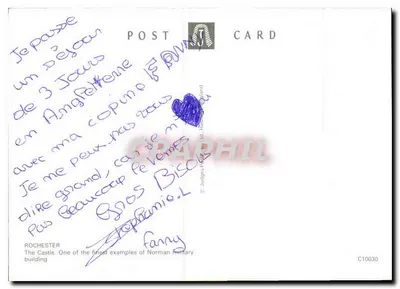 POST CARD
Je passe
un séjour
de 3 Jours
en Angleterre
avec ma copine
Je me peux pas vous
dire grand, car je n'
Pas Beaucoup
Gros Bisous
Stephanie.L
Fanny
ROCHESTER
The Castle. One of the finest examples of Norman military
building
C10030